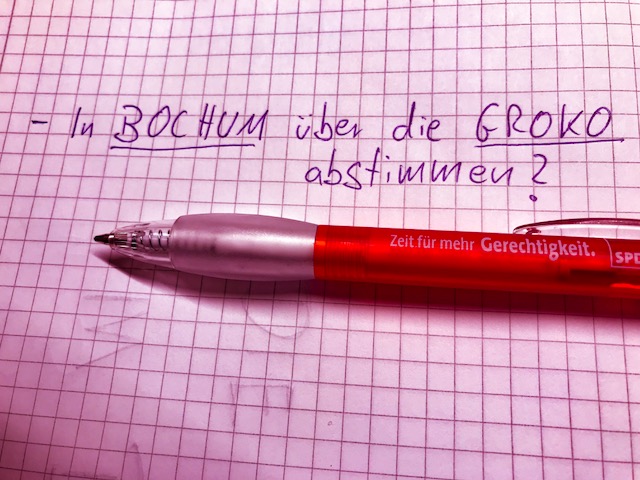 - In BOCHUM über die GROKO
abstimmen?
Zeit für mehr Gerechtigkeit. SPD